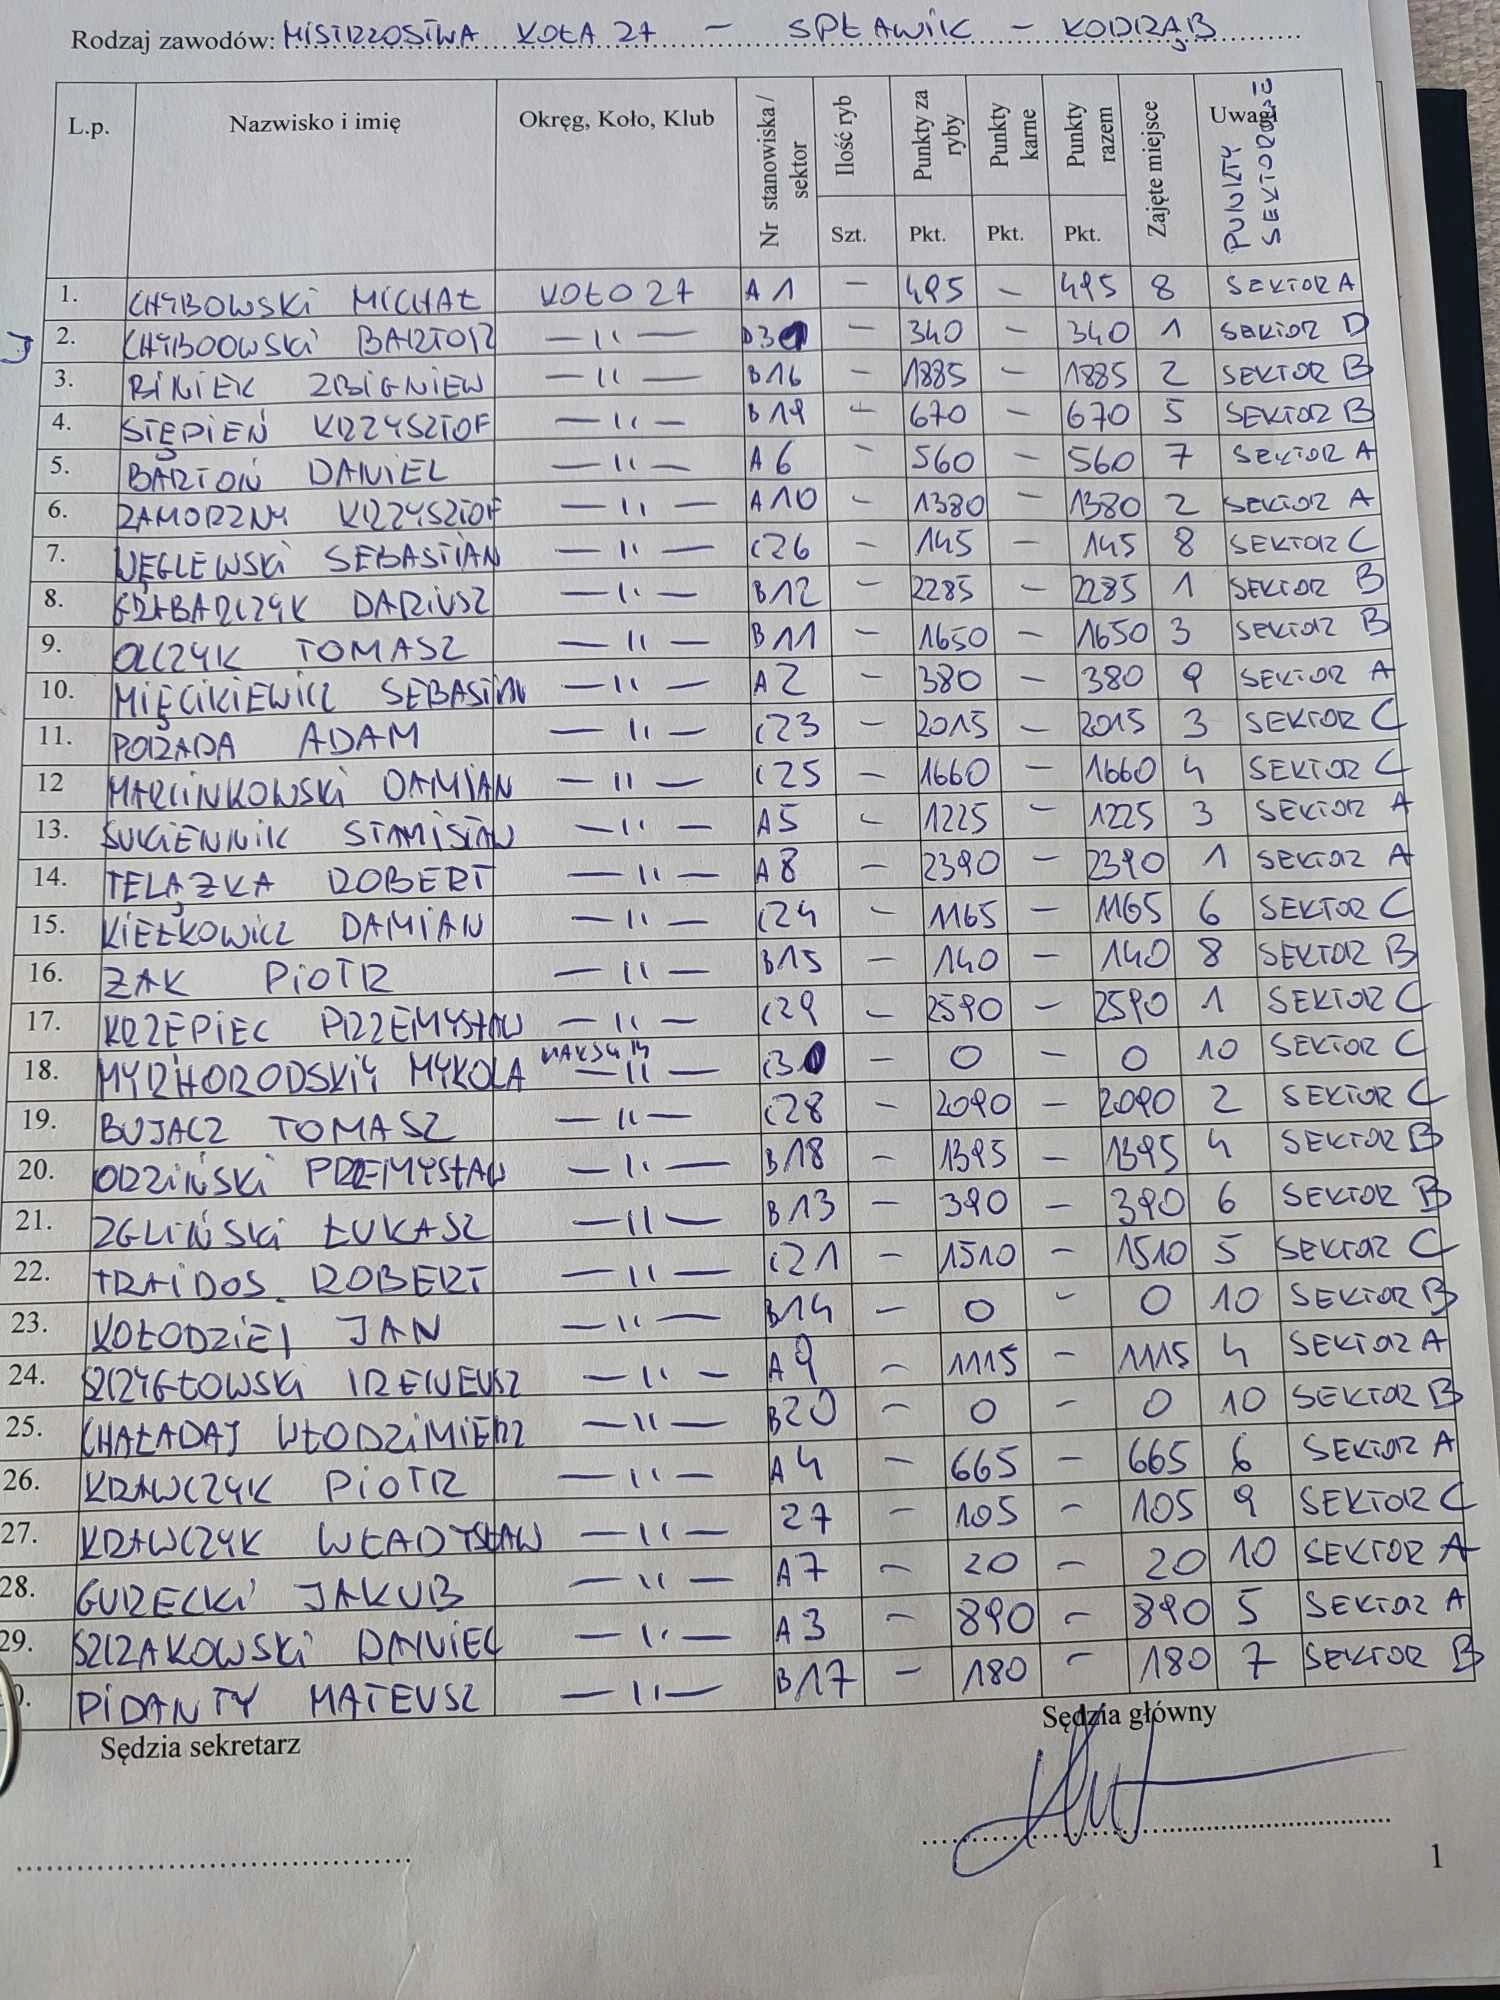 Rodzaj zawodów: MISTRZOSTWA KOŁA 27 – SPŁAWIK – KODRĄB
L.p. Nazwisko i imię Okręg, Koło, Klub Nr stanowiska / sektor Ilość ryb Punkty za ryby Punkty karne Punkty razem Zajęte miejsce Uwagi PUNKTY SEKTOROWE
Szt. Pkt. Pkt. Pkt.
1. CHYBOWSKI MICHAŁ KOŁO 27 A 1 – 495 – 495 8 SEKTOR A
J 2. CHYBOOWSKI BARTOSZ –〃– D31 – 340 – 340 1 SEKTOR D
3. BINIEK ZBIGNIEW –〃– B16 – 1885 – 1885 2 SEKTOR B
4. STĘPIEŃ KRZYSZTOF –〃– B19 – 670 – 670 5 SEKTOR B
5. BARTOŃ DANIEL –〃– A 6 – 560 – 560 7 SEKTOR A
6. ZAMORZNY KRZYSZTOF –〃– A 10 – 1380 – 1380 2 SEKTOR A
7. WĘGLEWSKI SEBASTIAN –〃– C26 – 145 – 145 8 SEKTOR C
8. GRABARCZYK DARIUSZ –〃– B12 – 2285 – 2285 1 SEKTOR B
9. OLCZYK TOMASZ –〃– B11 – 1650 – 1650 3 SEKTOR B
10. MIĘCIKIEWICZ SEBASTIAN –〃– A 2 – 380 – 380 9 SEKTOR A
11. PORADA ADAM –〃– C23 – 2015 – 2015 3 SEKTOR C
12 MARCINKOWSKI DAMIAN –〃– C25 – 1660 – 1660 4 SEKTOR C
13. SUKIENNIK STANISŁAW –〃– A 5 – 1225 – 1225 3 SEKTOR A
14. TELĄŻKA ROBERT –〃– A 8 – 2390 – 2390 1 SEKTOR A
15. KIEŁKOWICZ DAMIAN –〃– C24 – 1165 – 1165 6 SEKTOR C
16. ŻAK PIOTR –〃– B15 – 140 – 140 8 SEKTOR B
17. KRZEPIEC PRZEMYSŁAW –〃– C29 – 2590 – 2590 1 SEKTOR C
18. MYRHORODSKIY MYKOLA –〃– C30 – 0 – 0 10 SEKTOR C
19. BUJACZ TOMASZ –〃– C28 – 2090 – 2090 2 SEKTOR C
20. ORZIŃSKI PRZEMYSŁAW –〃– B18 – 1395 – 1395 4 SEKTOR B
21. ZGLIŃSKI ŁUKASZ –〃– B13 – 390 – 390 6 SEKTOR B
22. TRAIDOS ROBERT –〃– C21 – 1510 – 1510 5 SEKTOR C
23. KOŁODZIEJ JAN –〃– B14 – 0 – 0 10 SEKTOR B
24. SZCZYGŁOWSKI IRENEUSZ –〃– A 9 – 1115 – 1115 4 SEKTOR A
25. CHAŁADAJ WŁODZIMIERZ –〃– B20 – 0 – 0 10 SEKTOR B
26. KRAWCZYK PIOTR –〃– A 4 – 665 – 665 6 SEKTOR A
27. KRAWCZYK WŁADYSŁAW –〃– 27 – 105 – 105 9 SEKTOR C
28. GURECKI JAKUB –〃– A 7 – 20 – 20 10 SEKTOR A
29. SZCZAKOWSKI DANIEL –〃– A 3 – 890 – 890 5 SEKTOR A
0. PIDANTY MATEUSZ –〃– B17 – 180 – 180 7 SEKTOR B
Sędzia sekretarz Sędzia główny
1